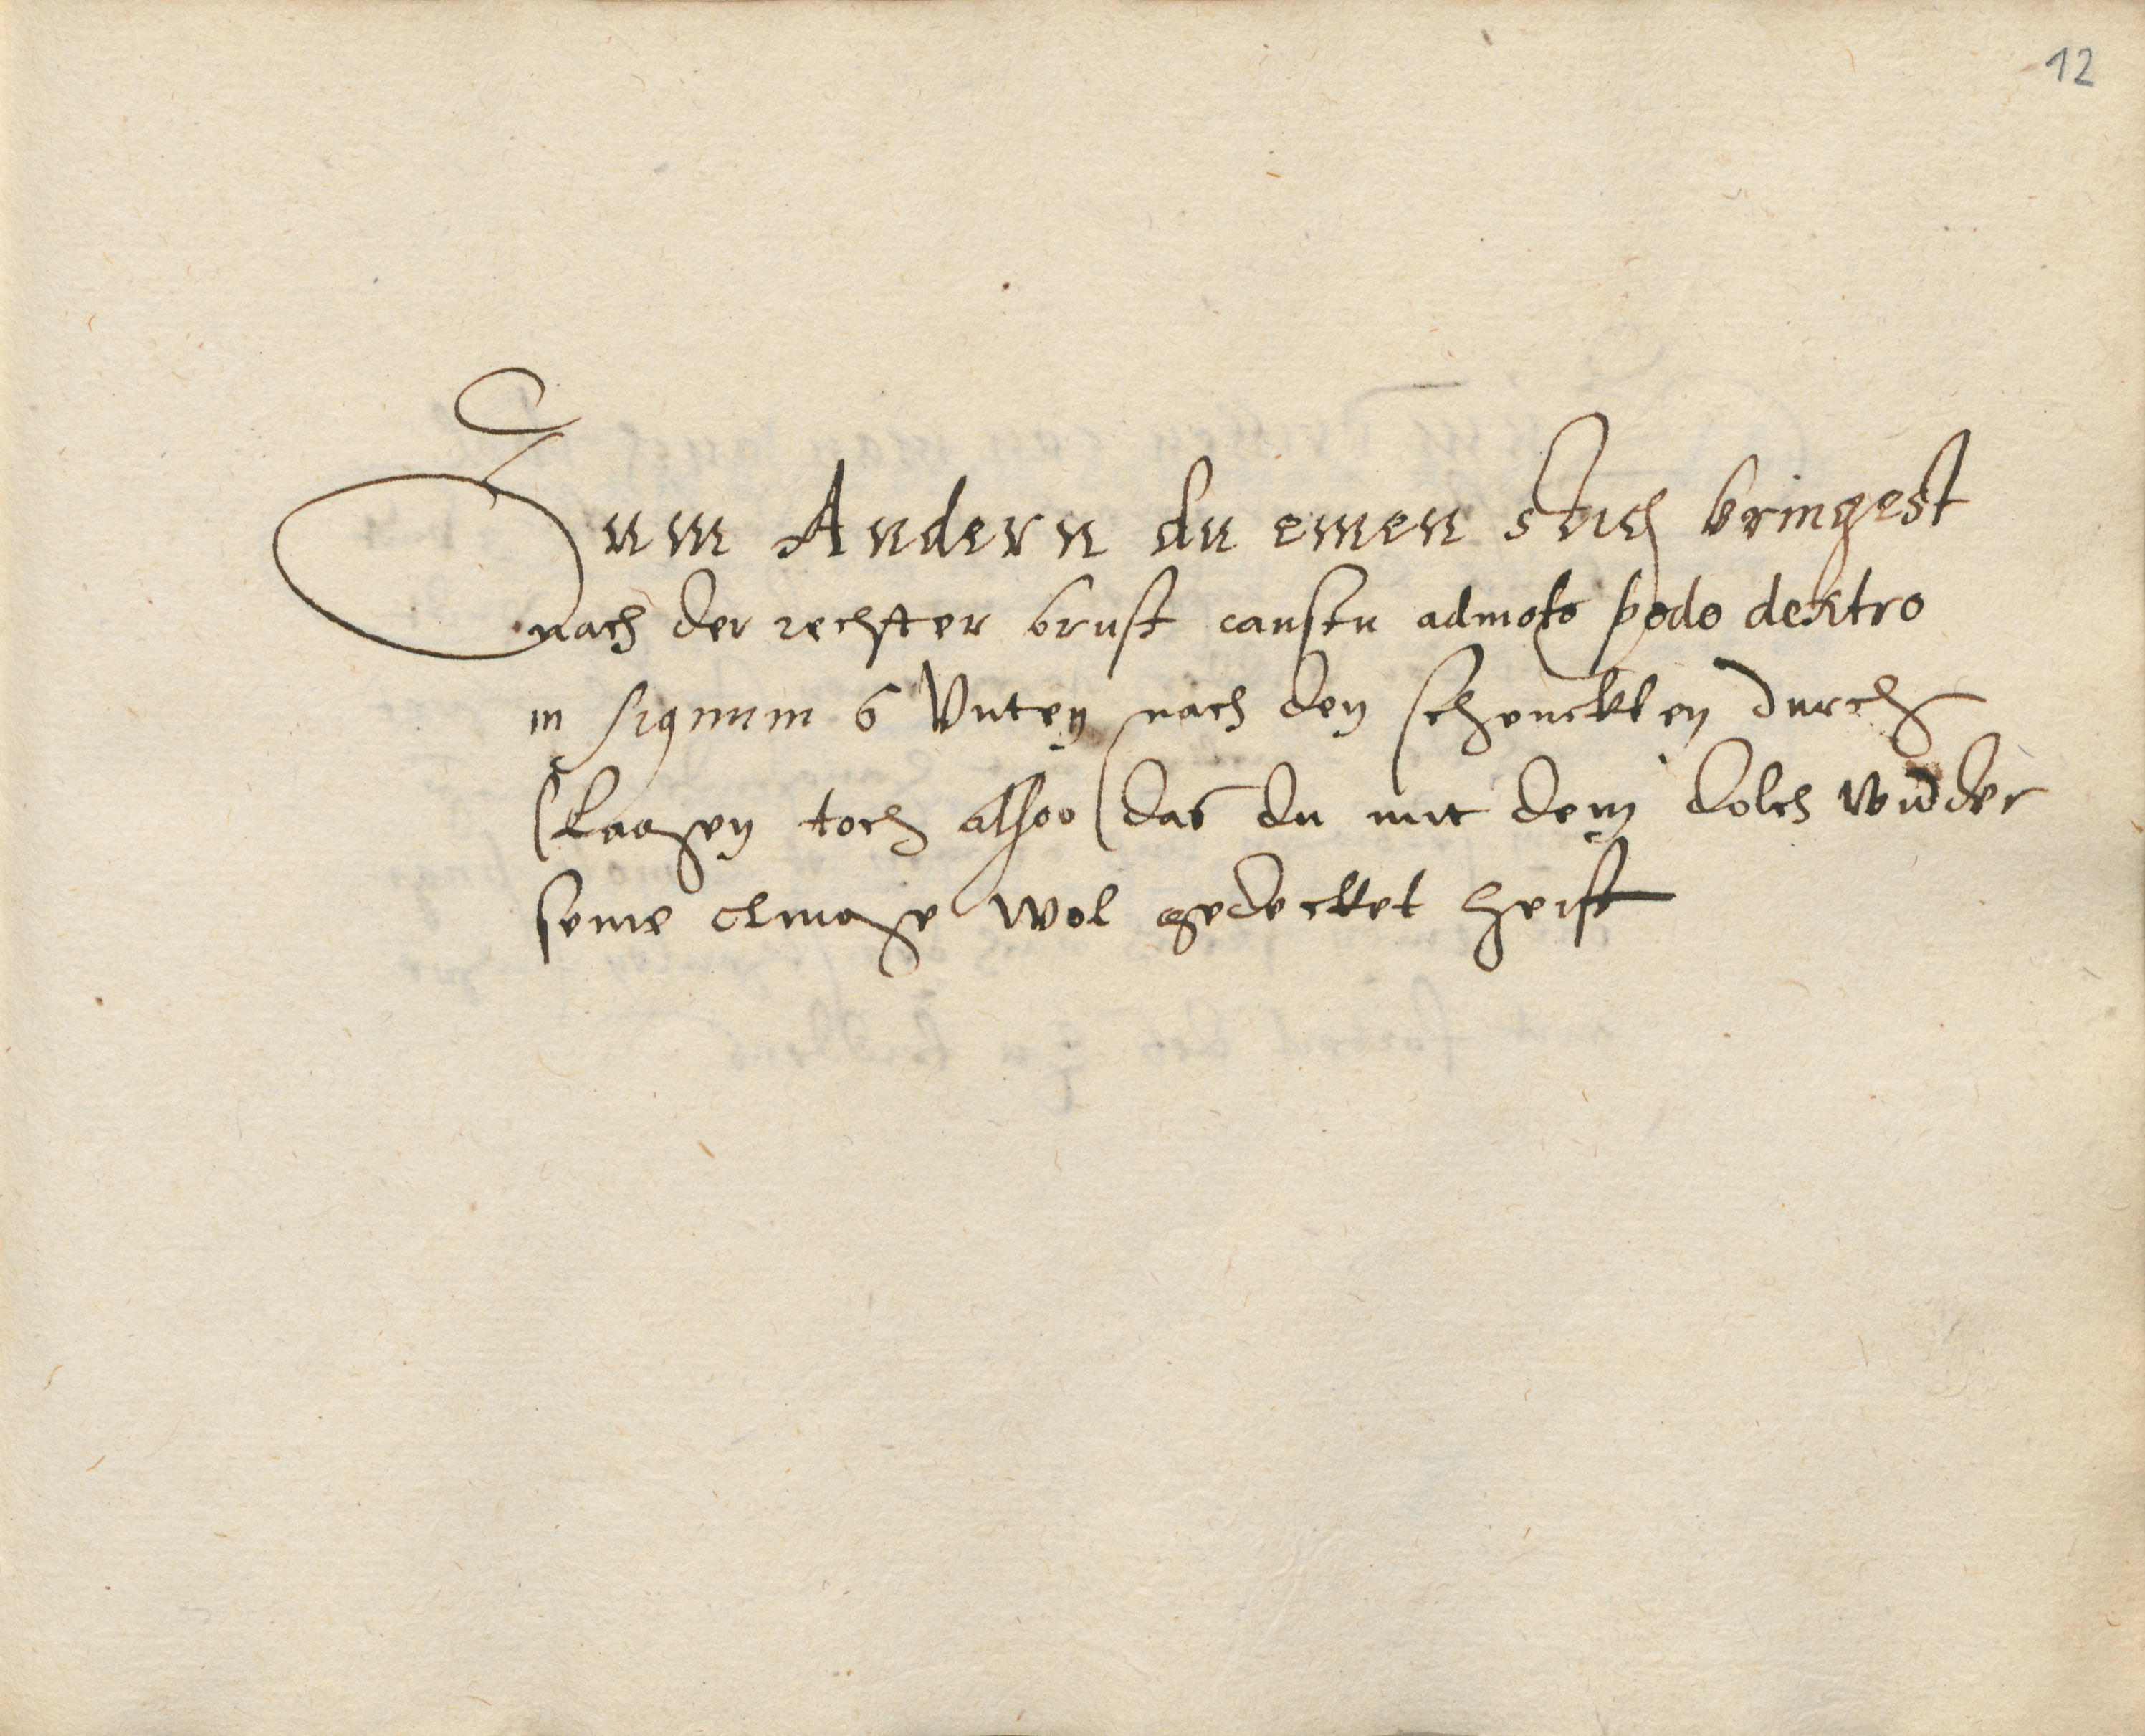 12
Zum Andern du einen stich bringest
nach der rechter brust canstu admoto pede dextro
in signum 6 Unten nach den schenckelen durch
slaagen toch alsoo das du mit dem dolch widder
seine clinge wol gedecket seist